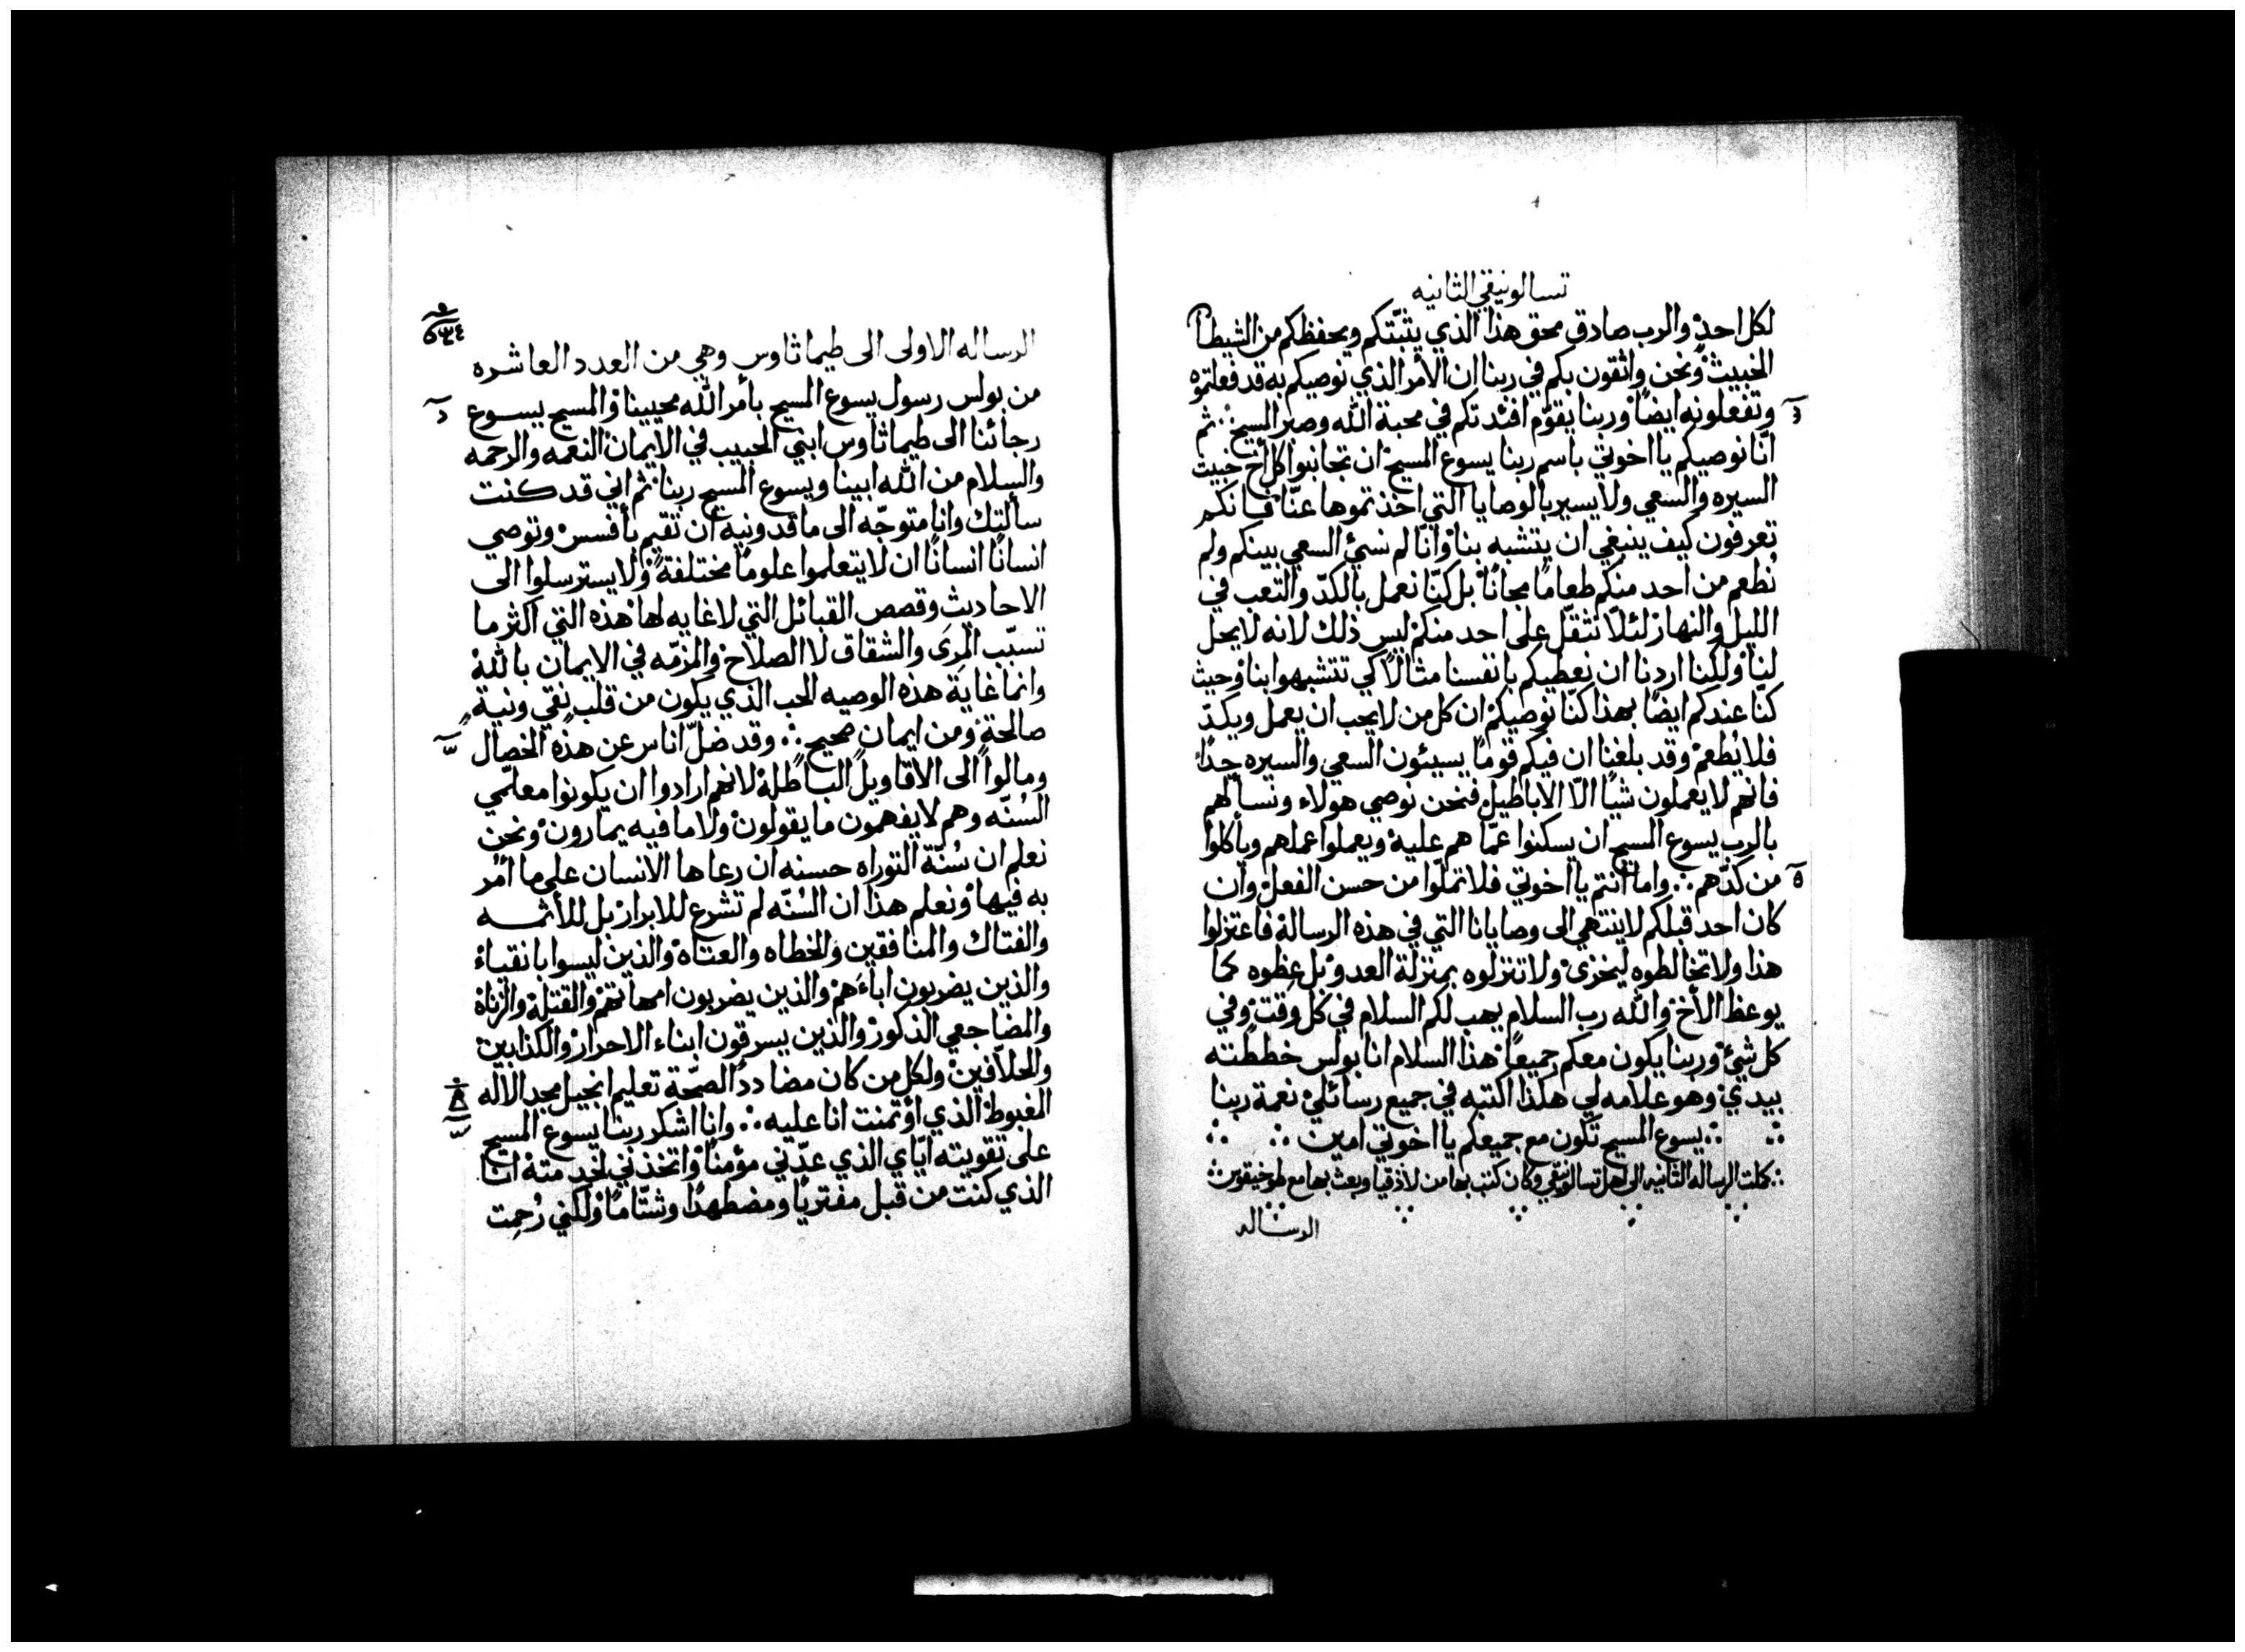 تسالونيقي الثانيه
لكل احد والرب صادق محق هذا الذي يثبّتكم ويحفظكم من الشيطا
الخبيث ونحن واثقون بكم في ربنا ان الأمر الذي نوصيكم به قد فعلتموه
وتفعلونه ايضًا وربنا يقوّم افئدتكم في محبة الله وصبر المسيح ثم
انّا نوصيكم يا اخوتي باسم ربنا يسوع المسيح ان تجانبوا كل اخ خبيث
السيره والسعي ولا يسير بالوصايا التي اخذتموها عنّا فانكم
تعرفون كيف ينبغي ان يتشبه بنا وانّا لم نسئ السعي بينكم ولم
نُطعم من احد منكم طعامًا مجانًا بل كنّا نعمل بالكدّ والتعب في
الليل والنهار لئلّا نثقّل على احد منكم ليس ذلك لانه لا يحل
لنا ولكننا اردنا ان نعطيكم بانفسنا مثالًا كي تتشبهوا بنا وحيث
كنّا عندكم ايضًا بهذا كنّا نوصيكم ان كل من لا يحب ان يعمل ويكدّ
فلا يُطعم وقد بلغنا ان فيكم قومًا يسيئون السعي والسيره جدًا
فانهم لا يعملون شيًا الّا الاباطيل فنحن نوصي هولاء ونسألهم
بالرب يسوع المسيح ان يسكنوا عمّا هم عليه ويعملوا عملهم ويأكلوا
من كدّهم ∴ واما انتم يا اخوتي فلا تملّوا من حسن الفعل وان
كان احد قبلكم لا ينتهي الى وصايانا التي في هذه الرسالة فاعتزلوا
هذا ولا تخالطوه ليخزى ولا تنزلوه بمنزلة العدو بل عظوه كما
يوعظ الأخ والله رب السلام يهب لكم السلام في كل وقت وفي
كل شيئ وربنا يكون معكم جميعًا هذا السلام انا بولس خططته
بيدي وهو علامه لي هكذا اكتبه في جميع رسائلي نعمة ربنا
∴ يسوع المسيح تكون مع جميعكم يا اخوتي امين ∴
كملت الرساله الثانيه الى اهل تسالونيقي وكان كتب بها من لاذقيا وبعث بها مع طوخيقوس
الرساله
الرساله الاولى الى طيماثاوس وهي من العدد العاشره
من بولس رسول يسوع المسيح بأمر الله محيينا والمسيح يسوع
رجائنا الى طيماثاوس ابني الحبيب في الايمان النعمه والرحمه
والسلام من الله ابينا ويسوع المسيح ربنا ثم اني قد كنت
سألتك وانا متوجّه الى ماقدونيه ان تقيم بأفسس وتوصي
انسانًا انسانًا ان لا يتعلموا علومًا مختلفة ولا يسترسلوا الى
الاحاديث وقصص القبائل التي لا غايه لها هذه التي اكثر ما
تسبّب المِرى والشقاق لا الصلاح والمزمّه في الايمان بالله
وانما غاية هذه الوصيه الحب الذي يكون من قلب نقي ونية
صالحة ومن ايمان صحيح ∴ وقد ضلّ اناس عن هذه الخصال
ومالوا الى الاقاويل الباطلة لانهم ارادوا ان يكونوا معلّمي
السُنّه وهم لا يفهمون ما يقولون ولا ما فيه يمارون ونحن
نعلم ان سُنّة التوراه حسنه ان رعاها الانسان على ما أمر
به فيها ونعلم هذا ان السُنّه لم تشرع للابرار بل للأثمه
والفتاك والمنافقين والخطاه والعتاه والذين ليسوا بانقياء
والذين يضربون اباءَهم والذين يضربون امهاتهم والقتله والزناة
والمضاجعي الذكور والذين يسرقون ابناء الاحرار والكذابين
والحلّافين ولكل من كان مضاددًا لصحّة تعليم انجيل مجد الاله
المغبوط الذي اؤتمنت انا عليه ∴ وانا اشكر ربنا يسوع المسيح
على تقويته ايّاي الذي عدّني مؤمنًا واتخذني لخدمته انا
الذي كنت من قبل مفتريًا ومضطهدًا وشتّامًا ولكني رُحِمت